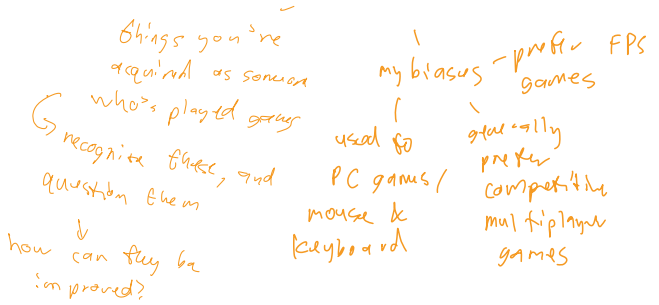 things you've
acquired as someone
who's played games
recognize these, and
question them
how can they be
improved?
my biases - prefer FPS
games
used to
PC games/
mouse &
keyboard
generally
prefer
competitive
multiplayer
games